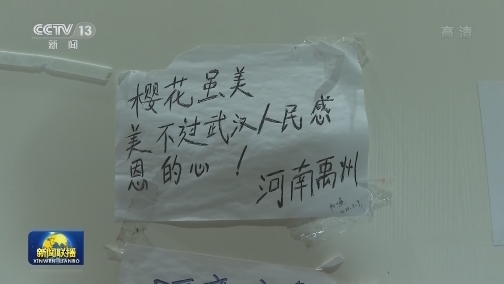 CCTV 13
新闻
高清
樱花虽美
美不过武汉人民感
恩的心！
河南禹州
新闻联播
XINWEN LIANBO